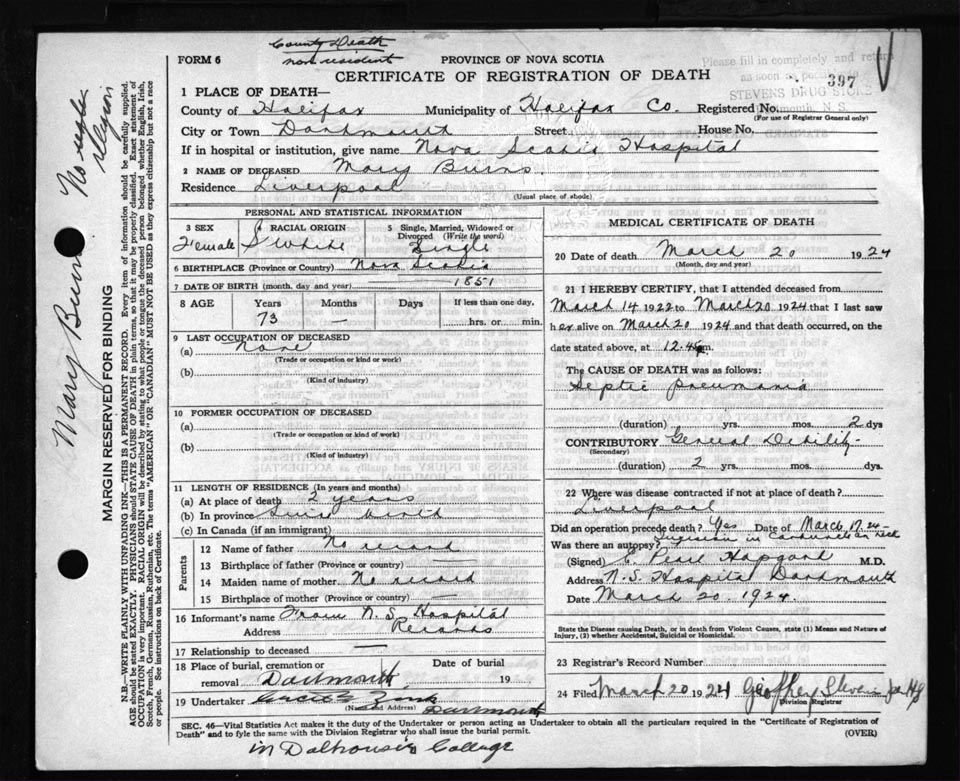 County Death
non resident
FORM 6
PROVINCE OF NOVA SCOTIA
CERTIFICATE OF REGISTRATION OF DEATH
Please fill in completely and return
as soon as
STEVENS DRUG STORE
N. S.
397
1 PLACE OF DEATH—
County of Halifax Municipality of Halifax Co. Registered No.
(For use of Registrar General only)
City or Town Dartmouth Street House No.
If in hospital or institution, give name Nova Scotia Hospital
2 NAME OF DECEASED Mary Burns.
Residence Liverpool
(Usual place of abode)
PERSONAL AND STATISTICAL INFORMATION
3 SEX Female
4 RACIAL ORIGIN White
5 Single, Married, Widowed or Divorced (Write the word) Single
6 BIRTHPLACE (Province or Country) Nova Scotia
7 DATE OF BIRTH (month, day, and year) 1851
8 AGE Years Months Days If less than one day,
73 — hrs. or min.
9 LAST OCCUPATION OF DECEASED
(a) None
(Trade or occupation or kind of work)
(b)
(Kind of industry)
10 FORMER OCCUPATION OF DECEASED
(a)
(Trade or occupation or kind of work)
(b)
(Kind of industry)
11 LENGTH OF RESIDENCE (In years and months)
(a) At place of death 2 years
(b) In province Since birth
(c) In Canada (if an immigrant)
Parents
12 Name of father No record
13 Birthplace of father (Province or country) —
14 Maiden name of mother No record
15 Birthplace of mother (Province or country) —
16 Informant's name From N. S. Hospital
Address Records
17 Relationship to deceased —
18 Place of burial, cremation or removal Dartmouth Date of burial 19
19 Undertaker Zink
(Name and Address) Dartmouth
MEDICAL CERTIFICATE OF DEATH
20 Date of death March 20 1924
(Month, day and year)
21 I HEREBY CERTIFY, that I attended deceased from
March 14 1922 to March 20 1924 that I last saw
her alive on March 20 1924 and that death occurred, on the
date stated above, at 12.45 p.m.
The CAUSE OF DEATH was as follows:
Septic Pneumonia
(duration) yrs. mos. 2 dys
CONTRIBUTORY General Debility
(Secondary)
(duration) 2 yrs. mos. dys.
22 Where was disease contracted if not at place of death?
Liverpool
Did an operation precede death? Yes Date of March 17. 24
Was there an autopsy? Incision in Carbuncle on neck
(Signed) E. Pearl Hopgood M.D.
Address N. S. Hospital Dartmouth
Date March 20. 1924.
State the Disease causing Death, or in death from Violent Causes, state (1) Means and Nature of
Injury, (2) whether Accidental, Suicidal or Homicidal.
23 Registrar's Record Number
24 Filed March 20 1924 Geoffrey Stevens
Division Registrar
SEC. 46—Vital Statistics Act makes it the duty of the Undertaker or person acting as Undertaker to obtain all the particulars required in the "Certificate of Registration of
Death" and to fyle the same with the Division Registrar who shall issue the burial permit.
(OVER)
Dalhousie College
Mary Burns
MARGIN RESERVED FOR BINDING
N.B.—WRITE PLAINLY WITH UNFADING INK—THIS IS A PERMANENT RECORD. Every item of information should be carefully supplied.
AGE should be stated EXACTLY. PHYSICIANS should STATE CAUSE OF DEATH in plain terms, so that it may be properly classified. Exact statement of
OCCUPATION is very important. RACIAL ORIGIN will be described by stating to what people or tongue the deceased person belonged whether English, Irish,
Scotch, French, German, Russian, Ruthenian, etc. The terms "AMERICAN" OR "CANADIAN" MUST NOT BE USED as they express citizenship but not a race
or people. See instructions on back of Certificate.